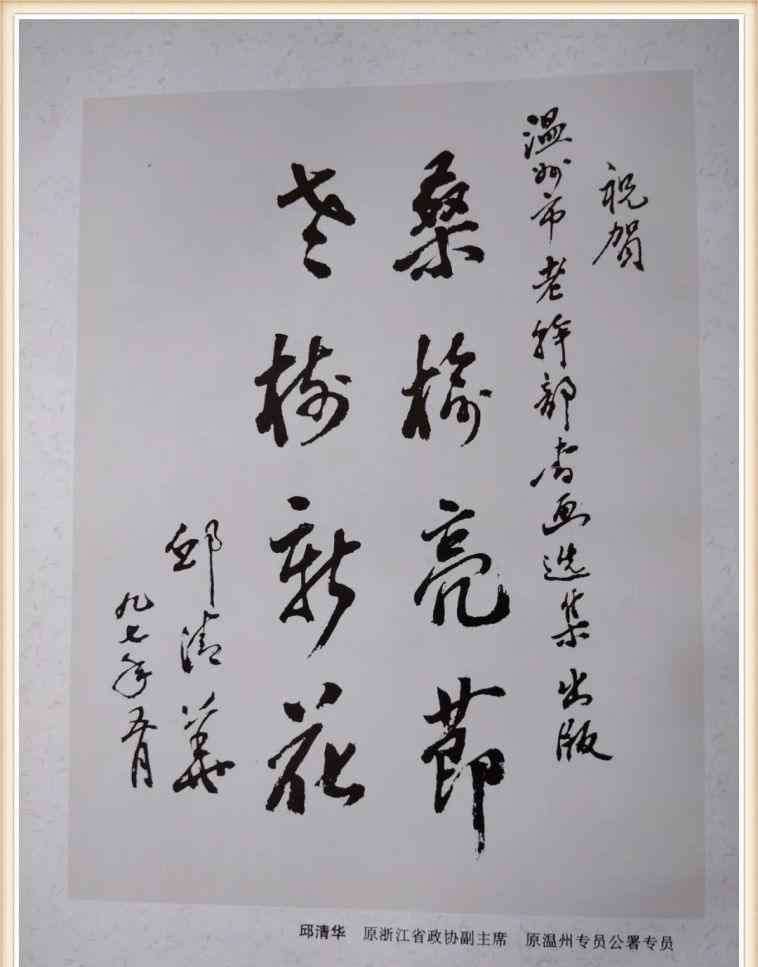 祝贺
温州市老幹部書画选集出版
桑榆亮節
老樹新花
邱清華
九七年五月
邱清华 原浙江省政协副主席 原温州专员公署专员